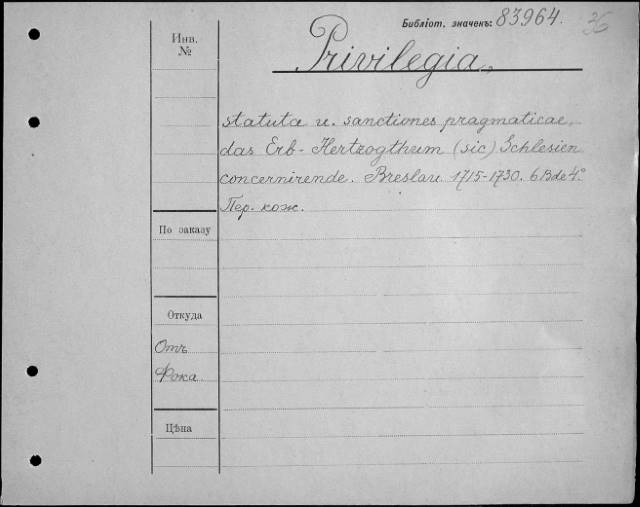 Библіот. значекъ: 83964. 36
Инв.
№
Privilegia,
statuta u. sanctiones pragmaticae,
das Erb-Hertzogthum (sic) Schlesien
concernirende. Breslau 1715-1730. 6 Bde 4°.
Пер. кож.
По заказу
Откуда
Отъ
Фока
Цѣна